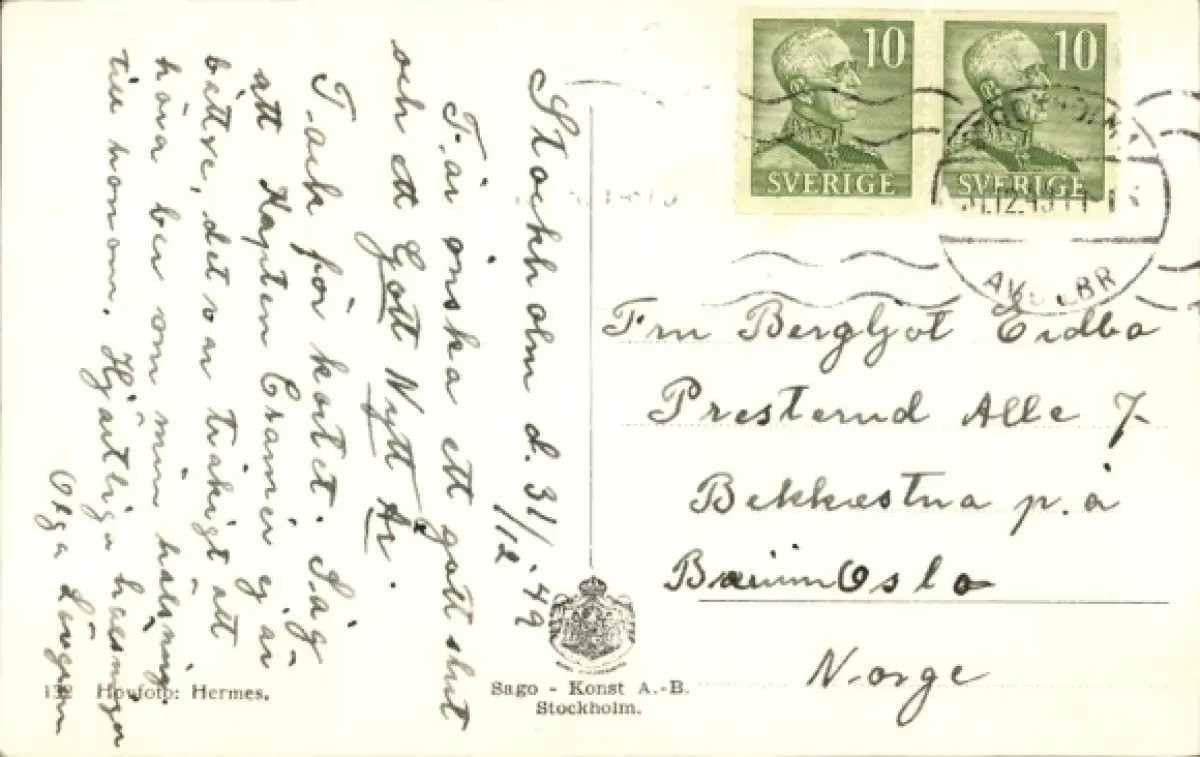 Stockholm d. 31/12.49
Får önska ett gott slut
och ett Gott Nytt År.
Tack för kortet. Såg
att Kapten Cramér ej är
bättre, det var tråkigt att
höra ber om min hälsning
till honom. Hjärtliga hälsningar
Olga
10 10
SVERIGE SVERIGE
31.12.49
AV BR
Fru Bergljot Eidbo
Presterud Alle 7
Bekkestua p.å
Bærum Oslo
Norge
132 Hovfoto: Hermes.
Sago - Konst A.-B.
Stockholm.